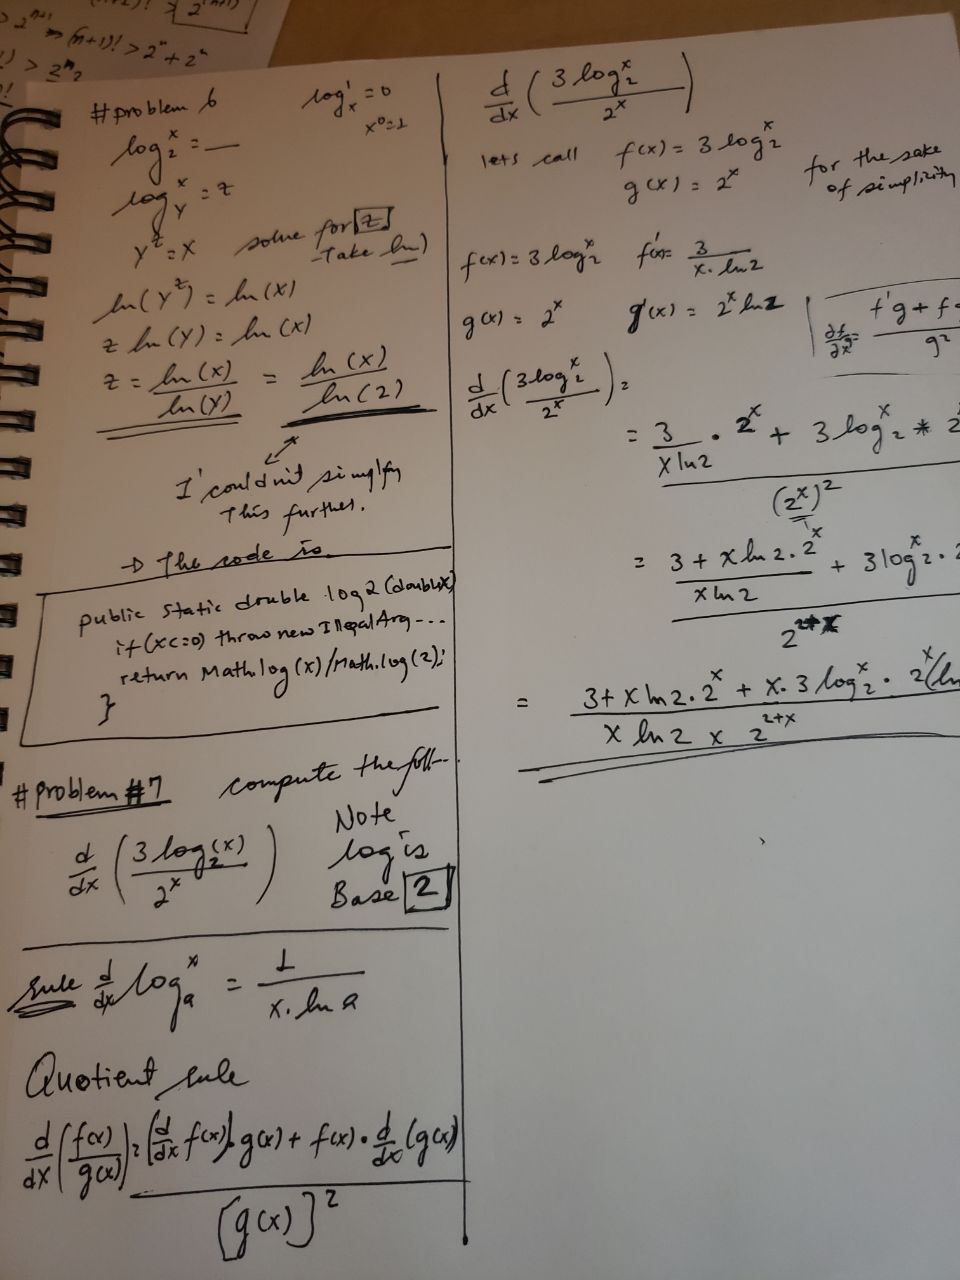 > 2^(n+1) => (n+1)! > 2^n + 2^n
> 2^n 2
#problem 6
log_x^1 = 0
x^0 = 1
log_2^x = __
log_Y^x = z
Y^z = X solve for z
-Take ln)
ln(Y^z) = ln(X)
z ln(Y) = ln(X)
z = ln(X)/ln(Y) = ln(X)/ln(2)
I couldnit simplfy
This further.
→ The code is
public static double log2(doublex)
if(x<=0) throw new IllegalArg---
return Math.log(x)/Math.log(2);
}
#Problem #7 compute the foll--
d/dx (3 log_2(x)/2^x)
Note
log is
Base 2
rule d/dx log_a^x = 1/x. ln a
Quotient rule
d/dx (f(x)/g(x)) = (d/dx f(x)). g(x) + f(x) . d/dx (g(x))/[g(x)]^2
d/dx (3 log_2^x/2^x)
lets call f(x) = 3 log_2^x
g(x) = 2^x
for the sake
of simplicity
f(x) = 3 log_2^x f'(x)= 3/x. ln2
g(x) = 2^x g'(x) = 2^x ln2
f'g + f
g^2
d/dx (3 log_2^x/2^x) =
= 3/x ln2 . 2^x + 3 log_2^x * 2
(2^x)^2
= 3 + x ln 2 . 2^x/x ln2 + 3 log_2^x . 2
2^(2+x)
= 3 + x ln 2 . 2^x + x . 3 log_2^x . 2^x (ln
x ln 2 x 2^(2+x)